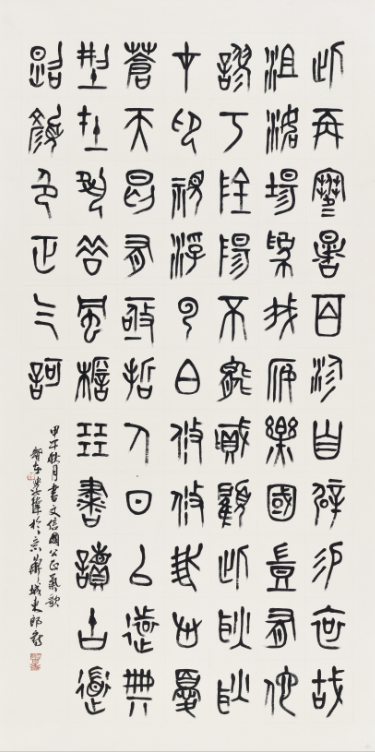 此再寒暑百沴自辟易哀哉
沮洳場為我安樂國豈有他
謬巧陰陽不能賊顧此耿耿
在仰視浮雲白悠悠我心憂
蒼天曷有極哲人日已遠典
型在夙昔風檐展書讀古道
照顏色正气訶
甲午秋月書文信國公正氣歌
於京華城東